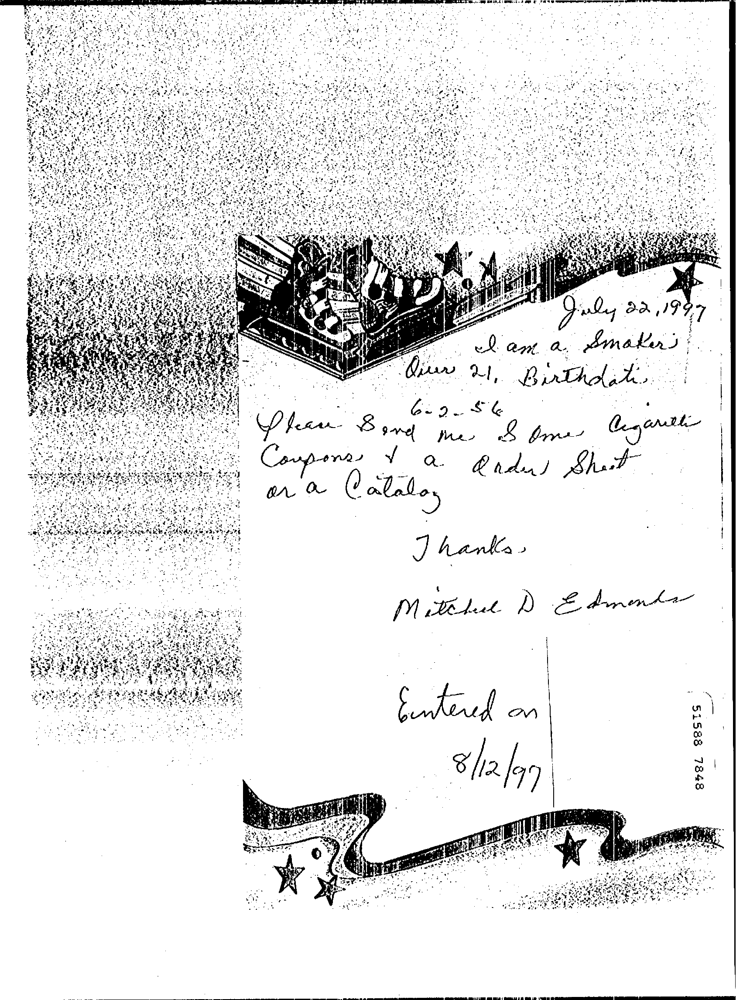 July 22, 1997
I am a Smoker
Over 21. Birthdate
6-2-56
Please Send me Some Cigarette
Coupons & a Order Sheet
or a Catalog
Thanks,
Mitchel D Edmonds
Entered on
8/12/97
51588 7848